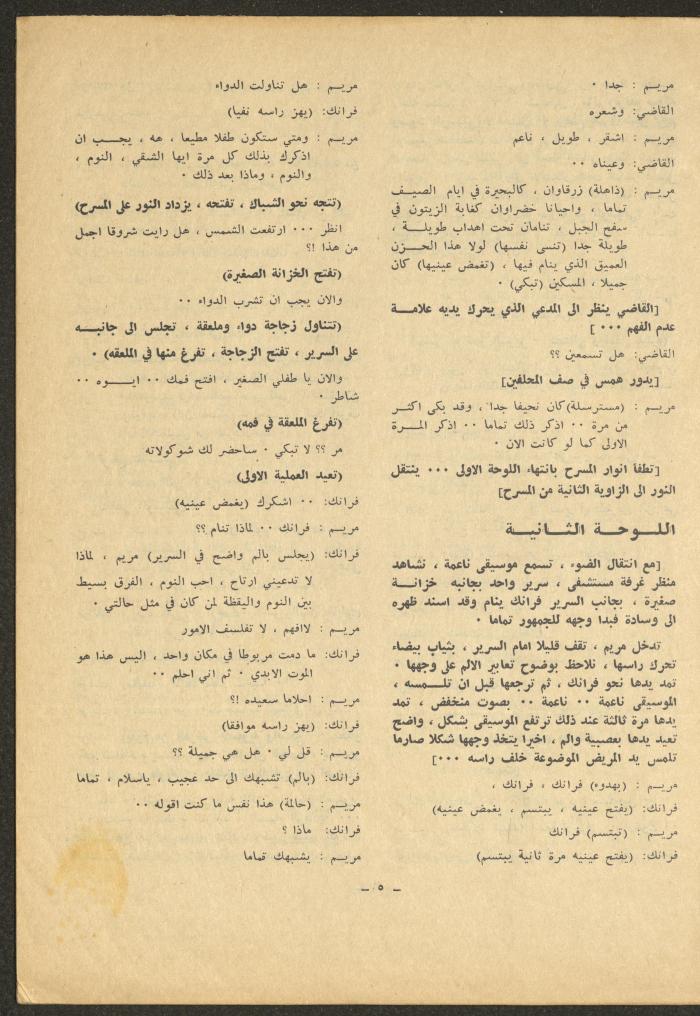 مريـم : جدا ٠
القاضي: وشعره
مريـم : اشقر ، طويل ، ناعم
القاضي: وعيناه ٠٠
مريـم : (ذاهلة) زرقاوان ، كالبحيرة في ايام الصيـف
تماما ، واحيانا خضراوان كغابة الزيتون في
سفح الجبل ، تنامان تحت اهداب طويلـــة ،
طويلة جدا (تنسى نفسها) لولا هذا الحـــزن
العميق الذي ينام فيها ، (تغمض عينيها) كان
جميلا ، المسكين (تبكي) ٠
[القاضي ينظر الى المدعي الذي يحرك يديه علامـــة
عدم الفهم ٠٠٠ ]
القاضي: هل تسمعين ؟؟
[يدور همس في صف المحلفين]
مريـم : (مسترسلة)كان نحيفا جدا ، وقد بكى اكثـــر
من مرة ٠٠ اذكر ذلك تماما ٠٠ اذكر المـــرة
الاولى كما لو كانت الان ٠
[تطفأ انوار المسرح بانتهاء اللوحة الاولى ٠٠٠ ينتقل
النور الى الزاوية الثانية من المسرح]
اللـــوحــة الثــانيـــة
[مع انتقال الضوء ، تسمع موسيقى ناعمة ، نشاهد
منظر غرفة مستشفى ، سرير واحد بجانبه خزانـــة
صغيرة ، بجانب السرير فرانك ينام وقد اسند ظهره
الى وسادة فبدا وجهه للجمهور تماما ٠
تدخل مريم ، تقف قليلا امام السرير ، بثياب بيضاء
تحرك راسها ، نلاحظ بوضوح تعابير الالم على وجهها ٠
تمد يدها نحو فرانك ، ثم ترجعها قبل ان تلـــمسه ،
الموسيقى ناعمة ٠٠ ناعمة ٠٠ بصوت منخفض ، تمد
يدها مرة ثالثة عند ذلك ترتفع الموسيقى بشكل ، واضح
تعيد يدها بعصبية والم ، اخيرا يتخذ وجهها شكلا صارما
تلمس يد المريض الموضوعة خلف راسه ٠٠٠]
مريـم : (بهدوء) فرانك ، فرانك ،
فرانك: (يفتح عينيه ، يبتسم ، يغمض عينيه)
مريـم : (تبتسم) فرانك
فرانك: (يفتح عينيه مرة ثانية يبتسم)
مريـم : هل تناولت الدواء
فرانك: (يهز راسه نفيا)
مريـم : ومتي ستكون طفلا مطيعا ، هه ، يجـــب ان
اذكرك بذلك كل مرة ايها الشقي ، النوم ،
والنوم ، وماذا بعد ذلك ٠
(تتجه نحو الشباك ، تفتحه ، يزداد النور على المسرح)
انظر ٠٠٠ ارتفعت الشمس ، هل رايت شروقا اجمل
من هذا !؟
(تفتح الخزانة الصغيرة)
والان يجب ان تشرب الدواء ٠٠
(تتناول زجاجة دواء وملعقة ، تجلس الى جانبـــه
على السرير ، تفتح الزجاجة ، تفرغ منها في الملعقه) ٠
والان يا طفلي الصغير ، افتح فمك ٠٠ ايـــوه ٠٠
شاطر ٠
(تفرغ الملعقة في فمه)
مر ؟؟ لا تبكي ٠ ساحضر لك شوكولاته
(تعيد العملية الاولى)
فرانك: ٠٠ اشكرك (يغمض عينيه)
مريـم : فرانك ٠٠ لماذا تنام ؟؟
فرانك: (يجلس بالم واضح في السرير) مريم ، لماذا
لا تدعيني ارتاح ، احب النوم ، الفرق بسيط
بين النوم واليقظة لمن كان في مثل حالتي ٠
مريـم : لاافهم ، لا تفلسف الامور
فرانك: ما دمت مربوطا في مكان واحد ، اليس هذا هو
الموت الابدي ٠ ثم اني احلم ٠٠
مريـم : احلاما سعيده !؟
فرانك: (يهز راسه موافقا)
مريـم : قل لي ٠ هل هي جميلة ؟؟
فرانك: (بالم) تشبهك الى حد عجيب ، ياسلام ، تماما
مريـم : (حالمة) هذا نفس ما كنت اقوله ٠٠
فرانك: ماذا ؟
مريـم : يشبهك تماما
ـ ٥ ـ